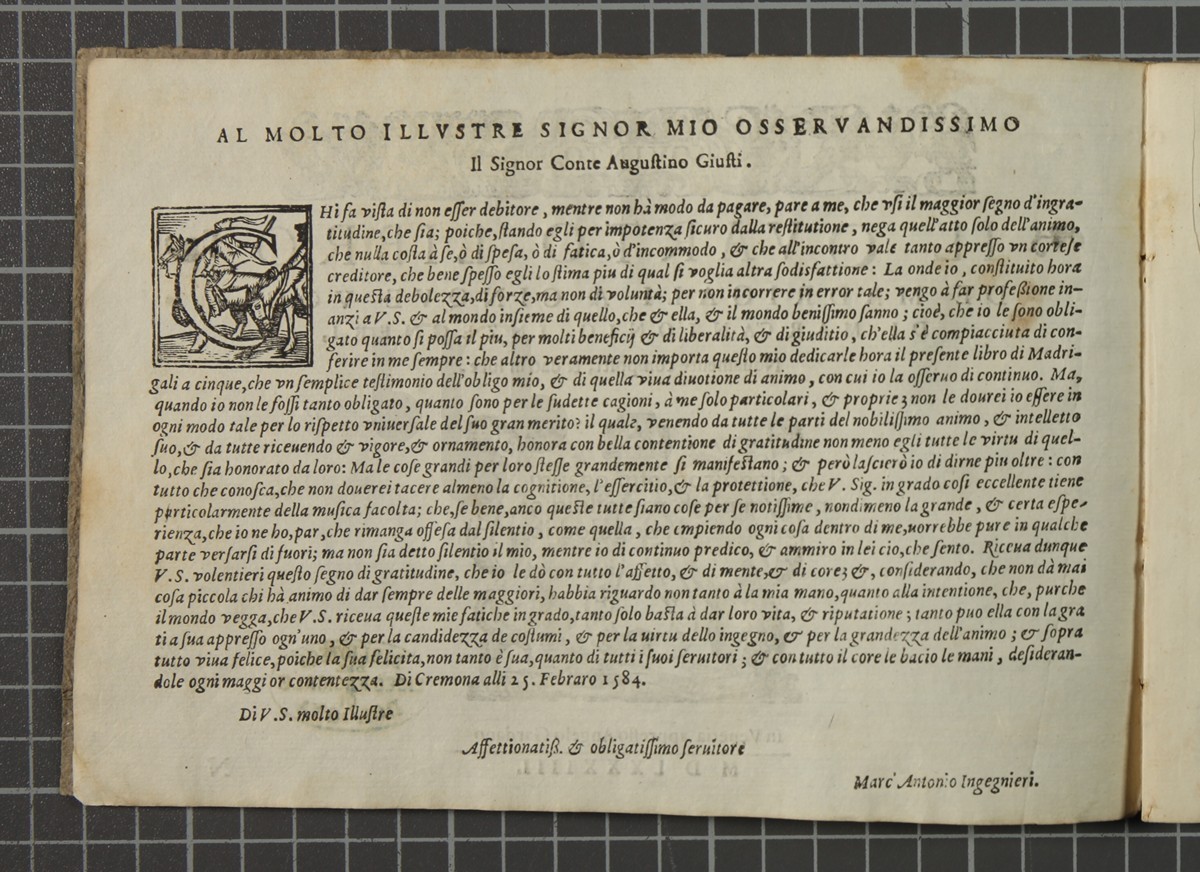 AL MOLTO ILLVSTRE SIGNOR MIO OSSERVANDISSIMO
Il Signor Conte Auguſtino Giuſti.
CHi fa viſta di non eſſer debitore, mentre non hà modo da pagare, pare a me, che vſi il maggior ſegno d'ingra-
titudine, che ſia; poiche, ſtando egli per impotenza ſicuro dalla reſtitutione, nega quell'atto ſolo dell'animo,
che nulla coſta à ſe, ò di ſpeſa, ò di fatica, ò d'incommodo, & che all'incontro vale tanto appreſſo vn corteſe
creditore, che bene ſpeſſo egli lo ſtima piu di qual ſi voglia altra ſodisfattione: La onde io, conſtituito hora
in queſta debolezza, di forze, ma non di voluntà; per non incorrere in error tale; vengo à far profeſſione in-
anzi a V.S. & al mondo inſieme di quello, che & ella, & il mondo beniſſimo ſanno; cioè, che io le ſono obli-
gato quanto ſi poſſa il piu, per molti beneficij & di liberalità, & di giuditio, ch'ella s'è compiacciuta di con-
ferire in me ſempre: che altro veramente non importa queſto mio dedicarle hora il preſente libro di Madri-
gali a cinque, che vn ſemplice teſtimonio dell'obligo mio, & di quella viua diuotione di animo, con cui io la oſſeruo di continuo. Ma,
quando io non le foſſi tanto obligato, quanto ſono per le ſudette cagioni, à me ſolo particolari, & proprie; non le dourei io eſſere in
ogni modo tale per lo riſpetto vniuerſale del ſuo gran merito? il quale, venendo da tutte le parti del nobiliſſimo animo, & intelletto
ſuo, & da tutte riceuendo & vigore, & ornamento, honora con bella contentione di gratitudine non meno egli tutte le virtu di quel-
lo, che ſia honorato da loro: Ma le coſe grandi per loro ſteſſe grandemente ſi manifeſtano; & però laſcierò io di dirne piu oltre: con
tutto che conoſca, che non douerei tacere almeno la cognitione, l'eſſercitio, & la protettione, che V. Sig. in grado coſi eccellente tiene
particolarmente della muſica facolta; che, ſe bene, anco queſte tutte ſiano coſe per ſe notiſſime, nondimeno la grande, & certa eſpe-
rienza, che io ne ho, par, che rimanga offeſa dal ſilentio, come quella, che empiendo ogni coſa dentro di me, uorrebbe pure in qualche
parte verſarſi di fuori; ma non ſia detto ſilentio il mio, mentre io di continuo predico, & ammiro in lei cio, che ſento. Riceua dunque
V.S. volentieri queſto ſegno di gratitudine, che io le dò con tutto l'affetto, & di mente, & di core; &, conſiderando, che non dà mai
coſa piccola chi hà animo di dar ſempre delle maggiori, habbia riguardo non tanto à la mia mano, quanto alla intentione, che, purche
il mondo vegga, che V.S. riceua queſte mie fatiche in grado, tanto ſolo baſta à dar loro vita, & riputatione; tanto puo ella con la gra
tia ſua appreſſo ogn'uno, & per la candidezza de coſtumi, & per la uirtu dello ingegno, & per la grandezza dell'animo; & ſopra
tutto viua felice, poiche la ſua felicita, non tanto è ſua, quanto di tutti i ſuoi ſeruitori; & con tutto il core le bacio le mani, deſideran-
dole ogni maggior contentezza. Di Cremona alli 25. Febraro 1584.
Di V.S. molto Illuſtre
Affettionatiſſ. & obligatiſſimo ſeruitore
Marc' Antonio Ingegnieri.